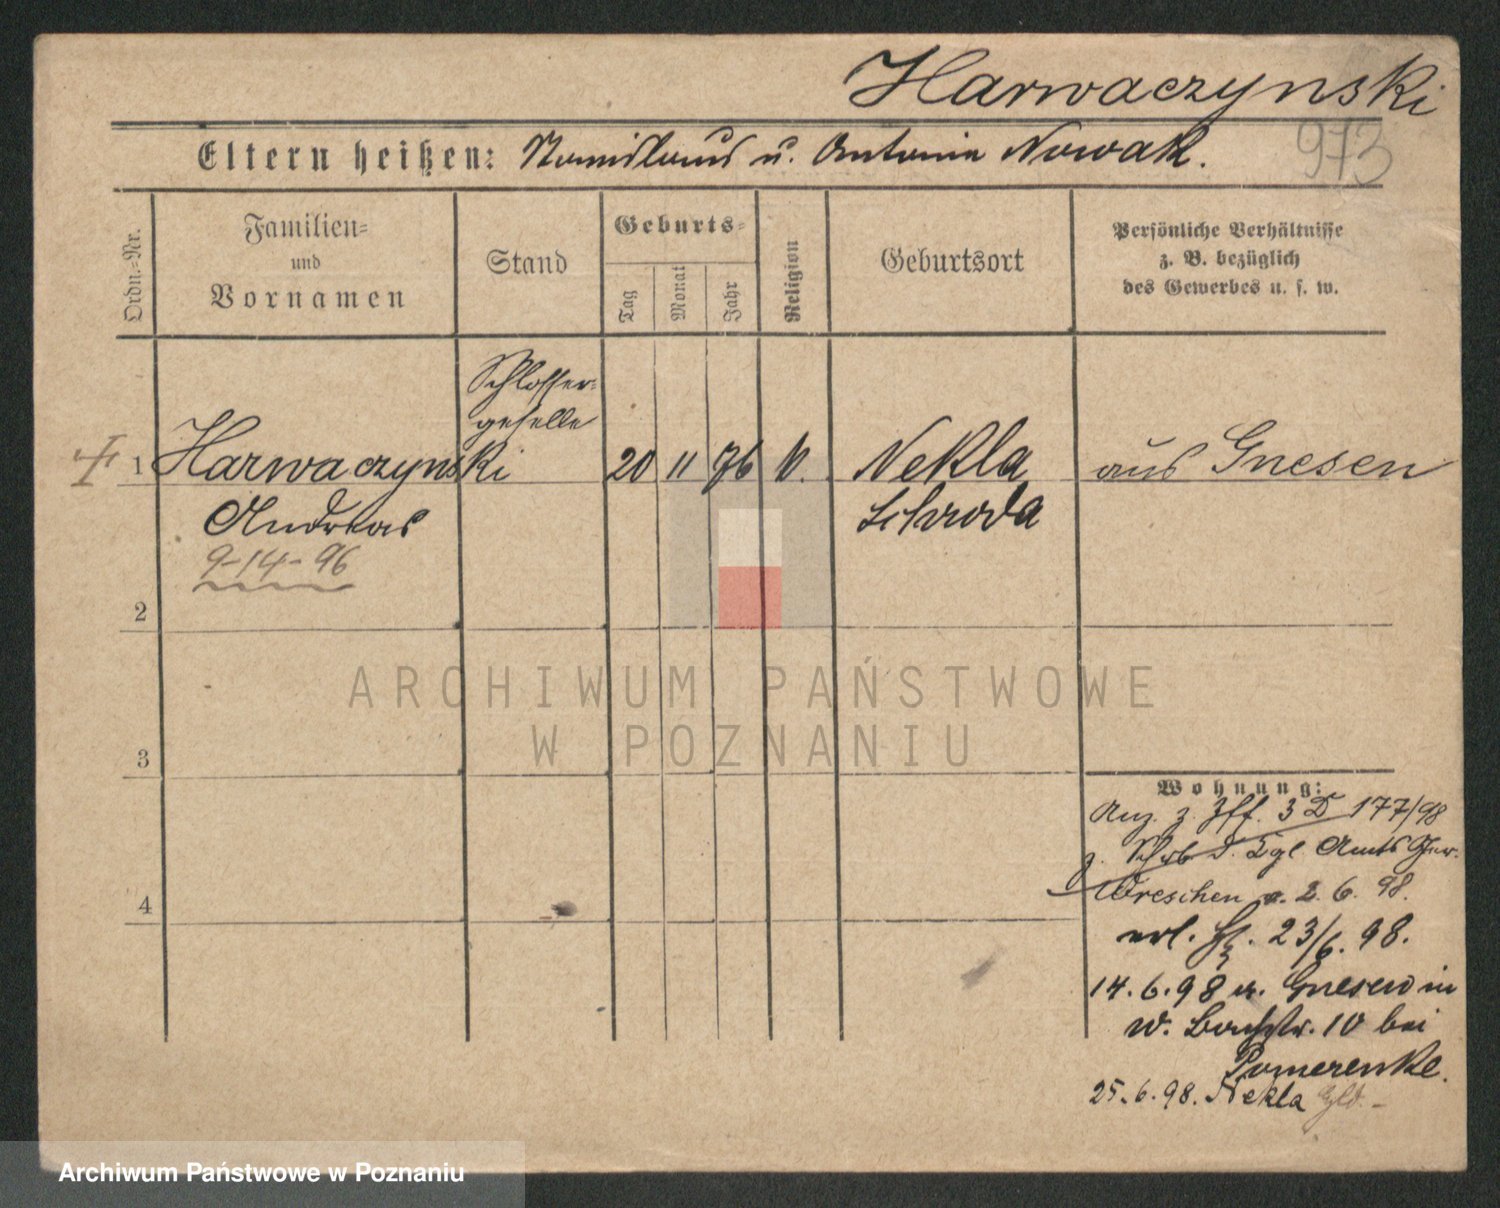 Harwaczynski
Eltern heißen: Stanislaus u. Antonie Nowak.
973
Ordn.-Nr.
Familien-
und
Vornamen
Stand
Geburts-
Tag
Monat
Jahr
Religion
Geburtsort
Persönliche Verhältnisse
z. B. bezüglich
des Gewerbes u. s. w.
Schlosser-
geselle
1 Harwaczynski 20 11 76 k. Nekla aus Gnesen
Andreas Schroda
9-14-96
2
3
4
Wohnung:
Anz. z. 3 D 177/98
z. Schrb d. Kgl. Amts Ger.
Wreschen v. 2. 6. 98.
erl. 23/6. 98.
14.6.98 v. Gnesen in
W. 10 bei
Pomerenke.
25.6.98. Nekla
ARCHIWUM PAŃSTWOWE
W POZNANIU
Archiwum Państwowe w Poznaniu